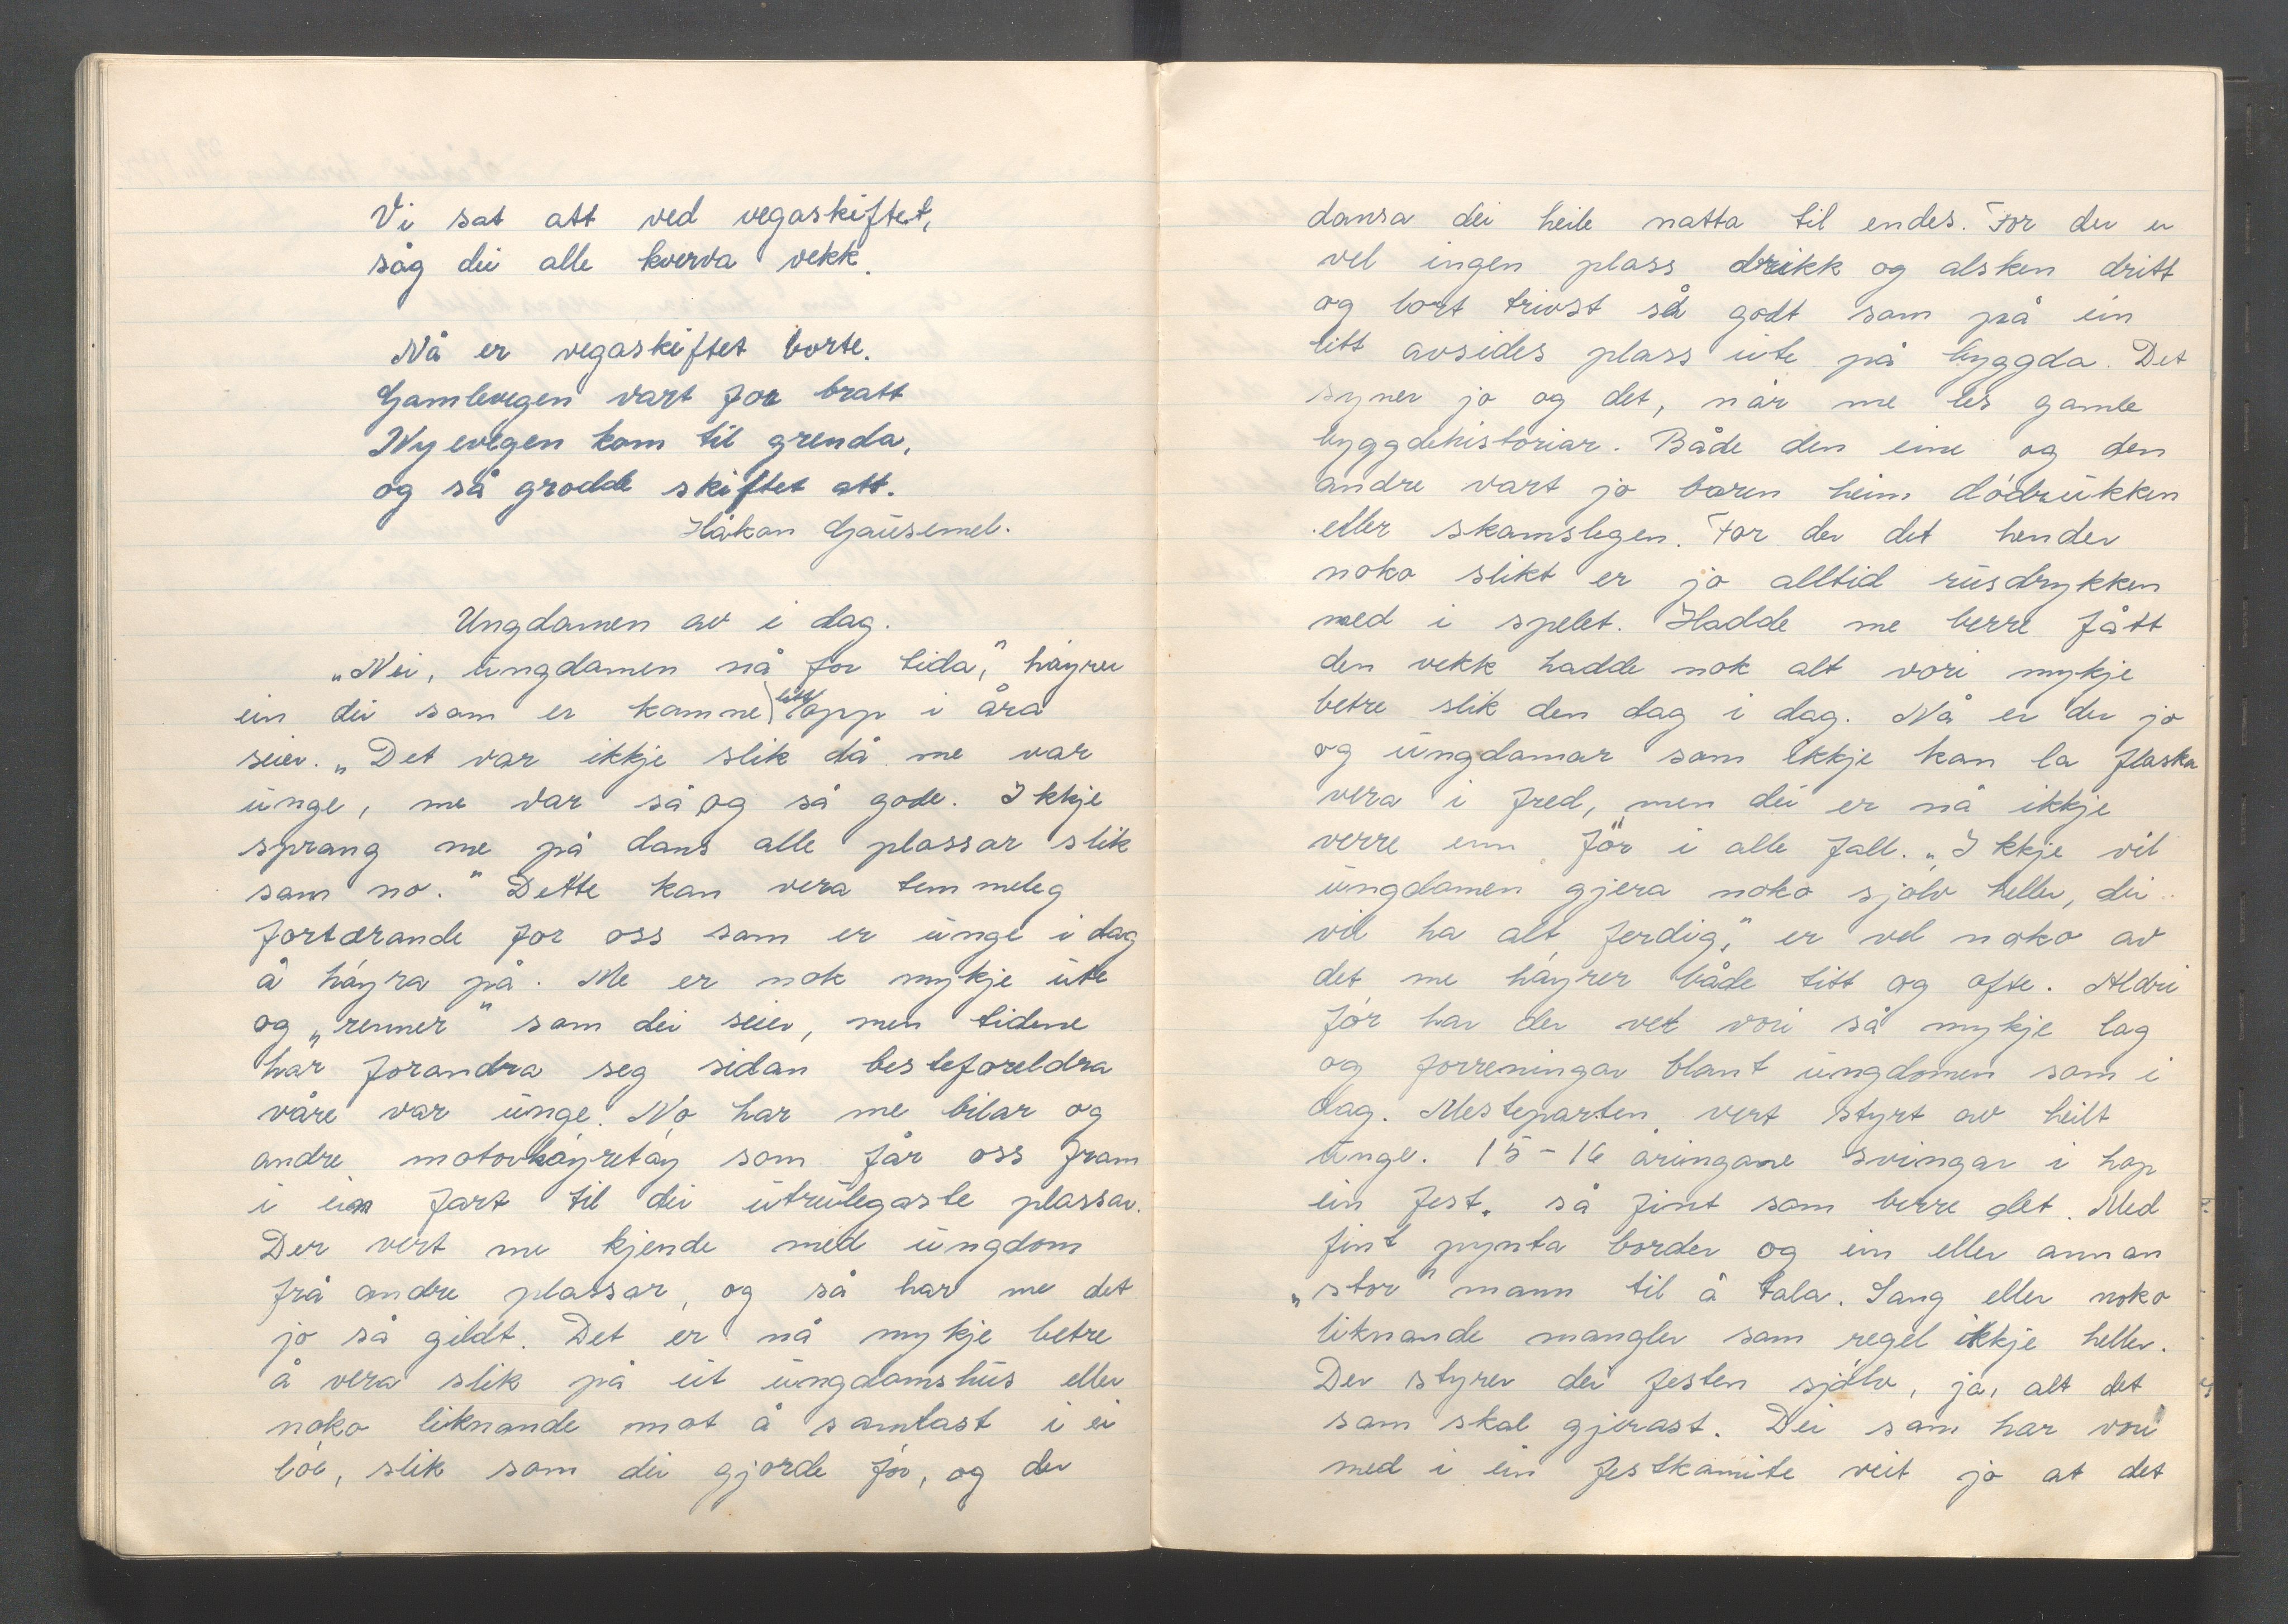 Vi sat att ved vegaskiftet,
såg dei alle kverva vekk.
Nå er vegaskiftet borte.
Gamlevegen vart for bratt
Nyevegen kom til grenda,
og så grodde skiftet att.
Håkan Gausemel.
Ungdomen av i dag.
„Nei, ungdomen nå for tida," høyrer
ein dei som er komne litt opp i åra
seier. „Det var ikkje slik då me var
unge, me var så og så gode. Ikkje
sprang me på dans alle plassar slik
som no." Dette kan vera temmeleg
fortærande for oss som er unge i dag
å høyra på. Me er nok mykje ute
og „renner" som dei seier, men tidene
har forandra seg sidan besteforeldra
våre var unge. No har me bilar og
andre motorkøyretøy som får oss fram
i ein fart til dei utrulegaste plassar.
Der vert me kjende med ungdom
frå andre plassar, og så har me det
jo så gildt. Det er nå mykje betre
å vera slik på eit ungdomshus eller
noko liknande mot å samlast i ei
löe, slik som dei gjorde för, og der
dansa dei heile natta til endes. For der er
vel ingen plass drikk og alsken dritt
og lort trivst så godt som på ein
litt avsides plass ute på byggda. Det
syner jo og det, når me les gamle
byggdehistoriar. Både den eine og den
andre vart jo boren heim dödrukken
eller skamslegen. For der det hender
noko slikt er jo alltid rusdrykken
med i spelet. Hadde me berre fått
den vekk hadde nok alt vori mykje
betre slik den dag i dag. Nå er der jo
og ungdomar som ikkje kan la flaska
vera i fred, men dei er nå ikkje
verre enn för i alle fall. „Ikkje vil
ungdomen gjera noko sjölv heller, dei
vil ha alt ferdig," er vel noko av
det me høyrer både titt og ofte. Aldri
för har der vel vori så mykje lag
og forreningar blant ungdomen som i
dag. Mesteparten vert styrt av heilt
unge. 15-16 åringane svingar i hop
ein fest. så fint som berre det. Med
fint pynta border og ein eller annan
„stor" mann til å tala. Sang eller noko
liknande mangler som regel ikkje heller.
Der styrer dei festen sjölv, ja, alt det
som skal gjerast. Dei som har vori
med i ein festkomite veit jo at det